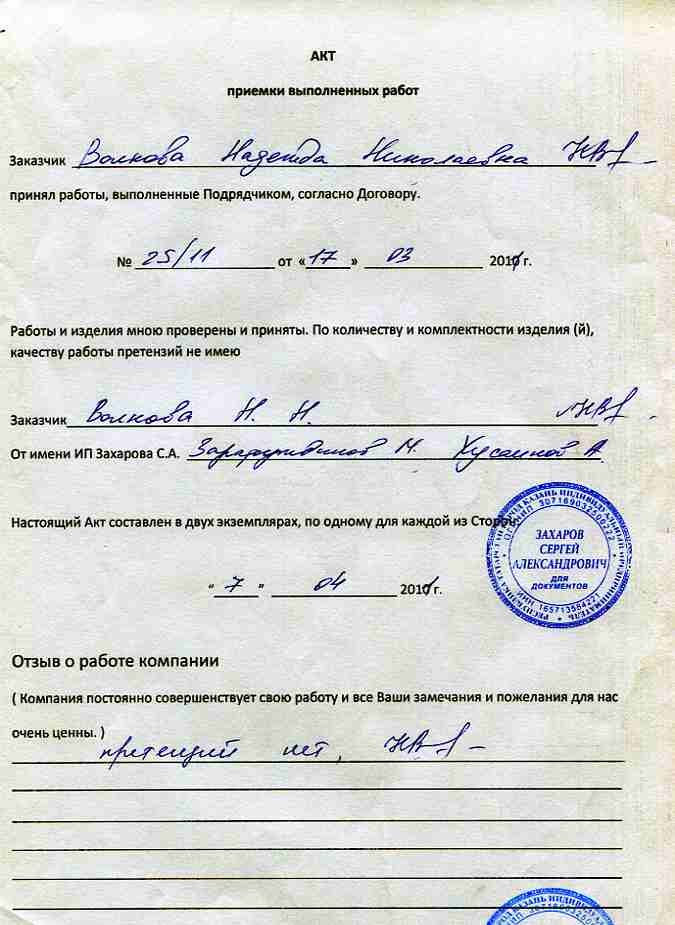 АКТ
приемки выполненных работ
Заказчик Волкова Надежда Николаевна
принял работы, выполненные Подрядчиком, согласно Договору.
№ 25/11 от «17» 03 2011 г.
Работы и изделия мною проверены и приняты. По количеству и комплектности изделия (й),
качеству работы претензий не имею
Заказчик Волкова Н. Н.
От имени ИП Захарова С.А. М. Хусаинов А
Настоящий Акт составлен в двух экземплярах, по одному для каждой из Сторон.
РЕСПУБЛИКА ТАТАРСТАН ГОРОД КАЗАНЬ ИНДИВИДУАЛЬНЫЙ ПРЕДПРИНИМАТЕЛЬ
ОГРНИП 307169032500222
ЗАХАРОВ
СЕРГЕЙ
АЛЕКСАНДРОВИЧ
ДЛЯ
ДОКУМЕНТОВ
ИНН 165713584221
"7" 04 2011 г.
Отзыв о работе компании
( Компания постоянно совершенствует свою работу и все Ваши замечания и пожелания для нас
очень ценны. )
претензий нет,
ГОРОД КАЗАНЬ ИНДИВИДУАЛЬ